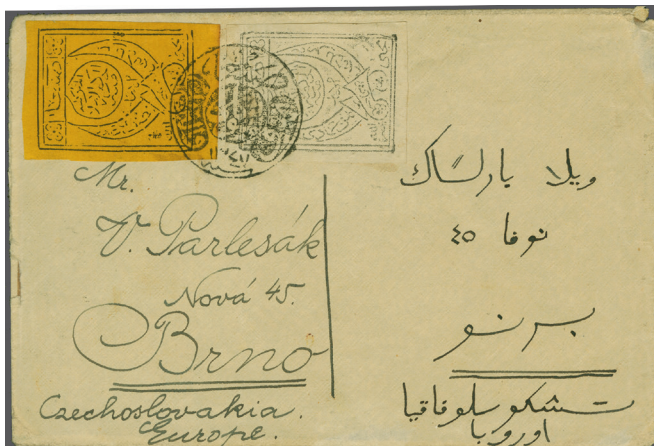 Mr.
V. Parlesák
Nová 45.
Brno
Czechoslovakia.
Europe.
ويلا بارلشاك
نوفا ٤٥
برنو
تشكوسلوفاقيا
اوروبا